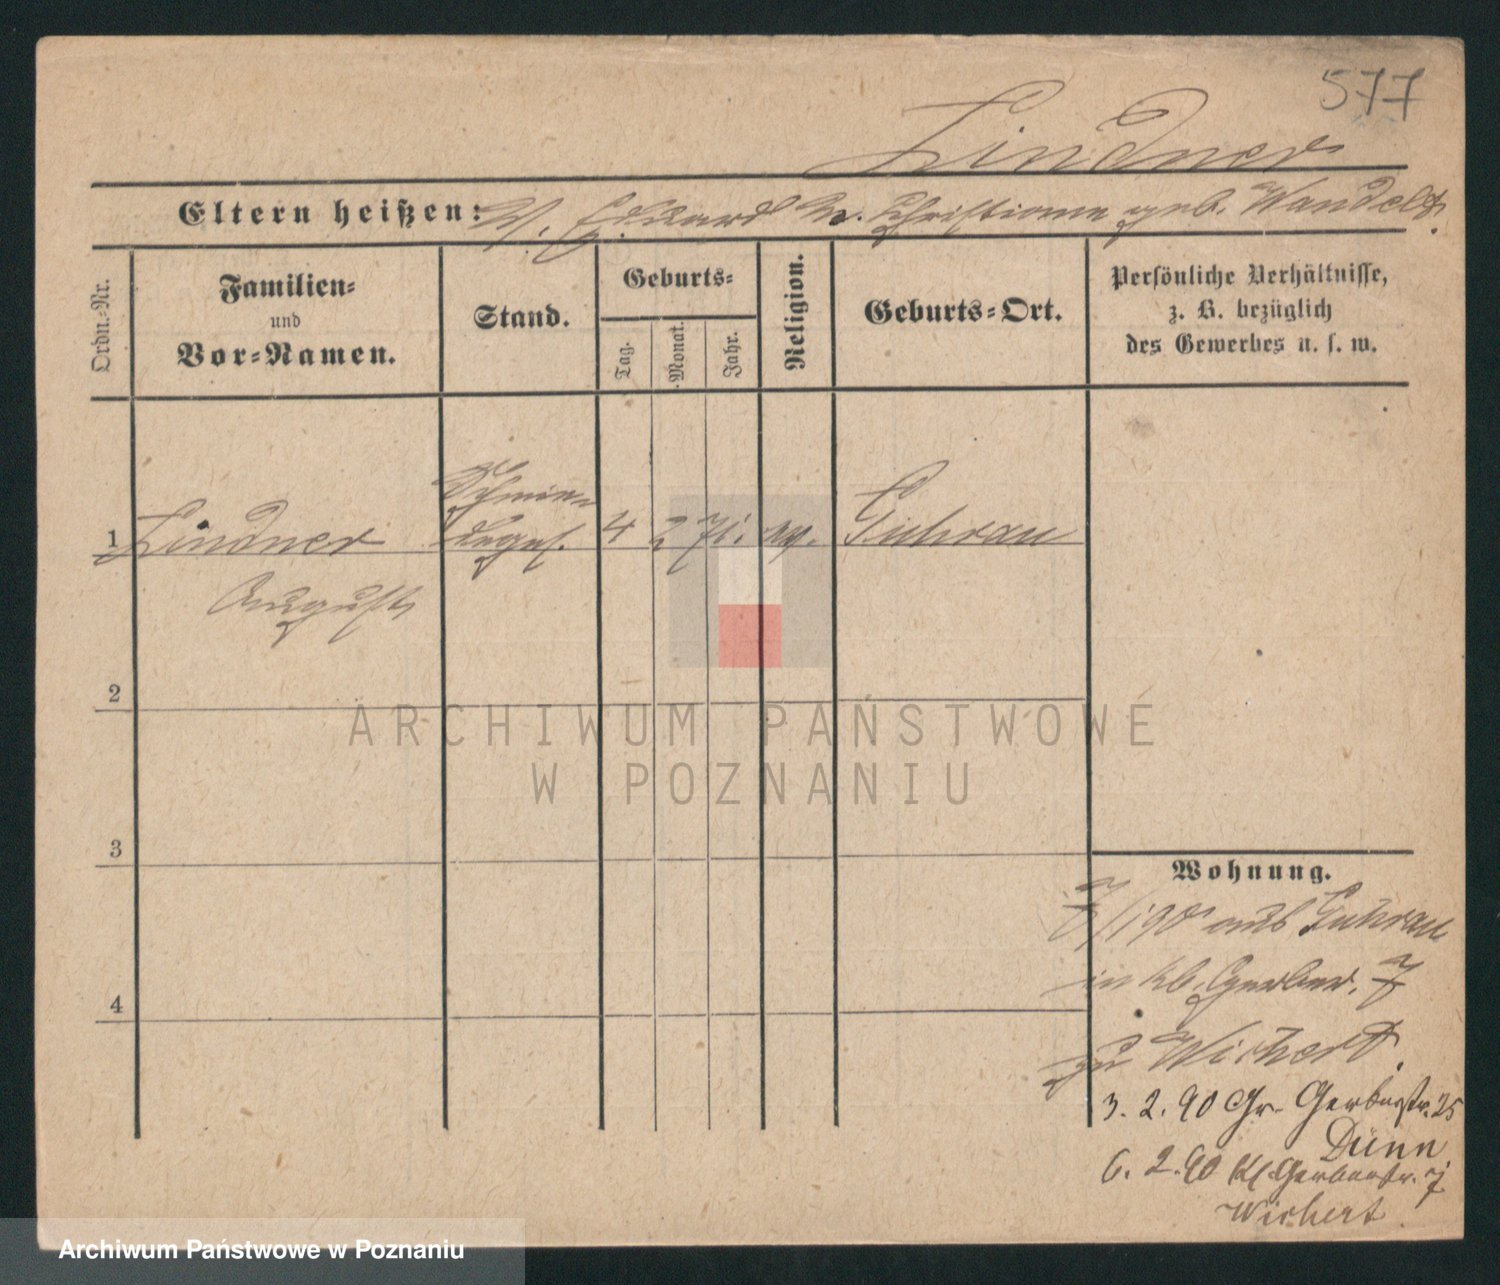 577
Lindner
Eltern heißen: W. Eduard u. Christiane geb. Wandelt.
Ordn.-Nr.
Familien-
und
Vor-Namen.
Stand.
Geburts-
Tag.
Monat.
Jahr.
Religion.
Geburts-Ort.
Persönliche Verhältnisse,
z. B. bezüglich
des Gewerbes u. s. w.
1 Lindner Schmie-
deges. 4 2 71. ev. Guhrau
August
2
3
4
Wohnung.
aus Guhrau
in Kl. Gerber. 7
zu Wichert.
3. 2. 90 Gr. Gerberstr. 25
Dünn
6. 2. 90 Kl. Gerberstr. 7
Wichert
ARCHIWUM PAŃSTWOWE
W POZNANIU
Archiwum Państwowe w Poznaniu